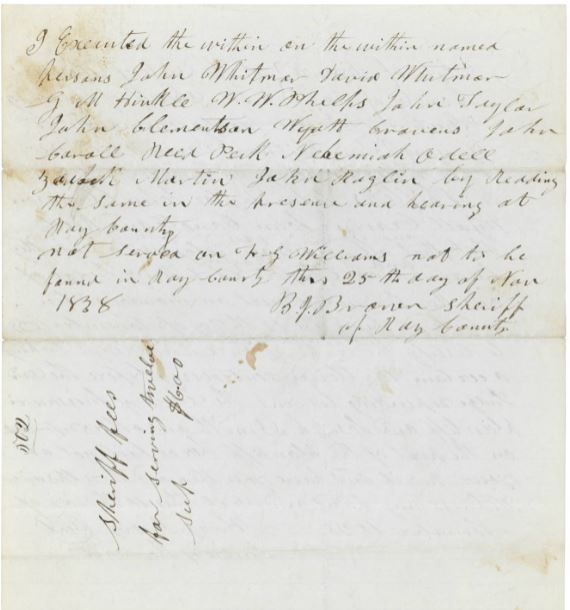 I Executed the within on the within named
persons John Whitmar David Whitmar
G M Hinkle W. W. Phelps John Taylor
John Clementson Wyatt Cravens John
Caroll Reed Peck Nehemiah Odell
Martin John Raglin by Reading
the same in the presence and hearing at
Ray County
not served on F G Williams not to be
found in Ray County this 25th day of Nov
1838 B J Brown Sheriff
of Ray County
Sheriff fees
for serving twelve
sub $600